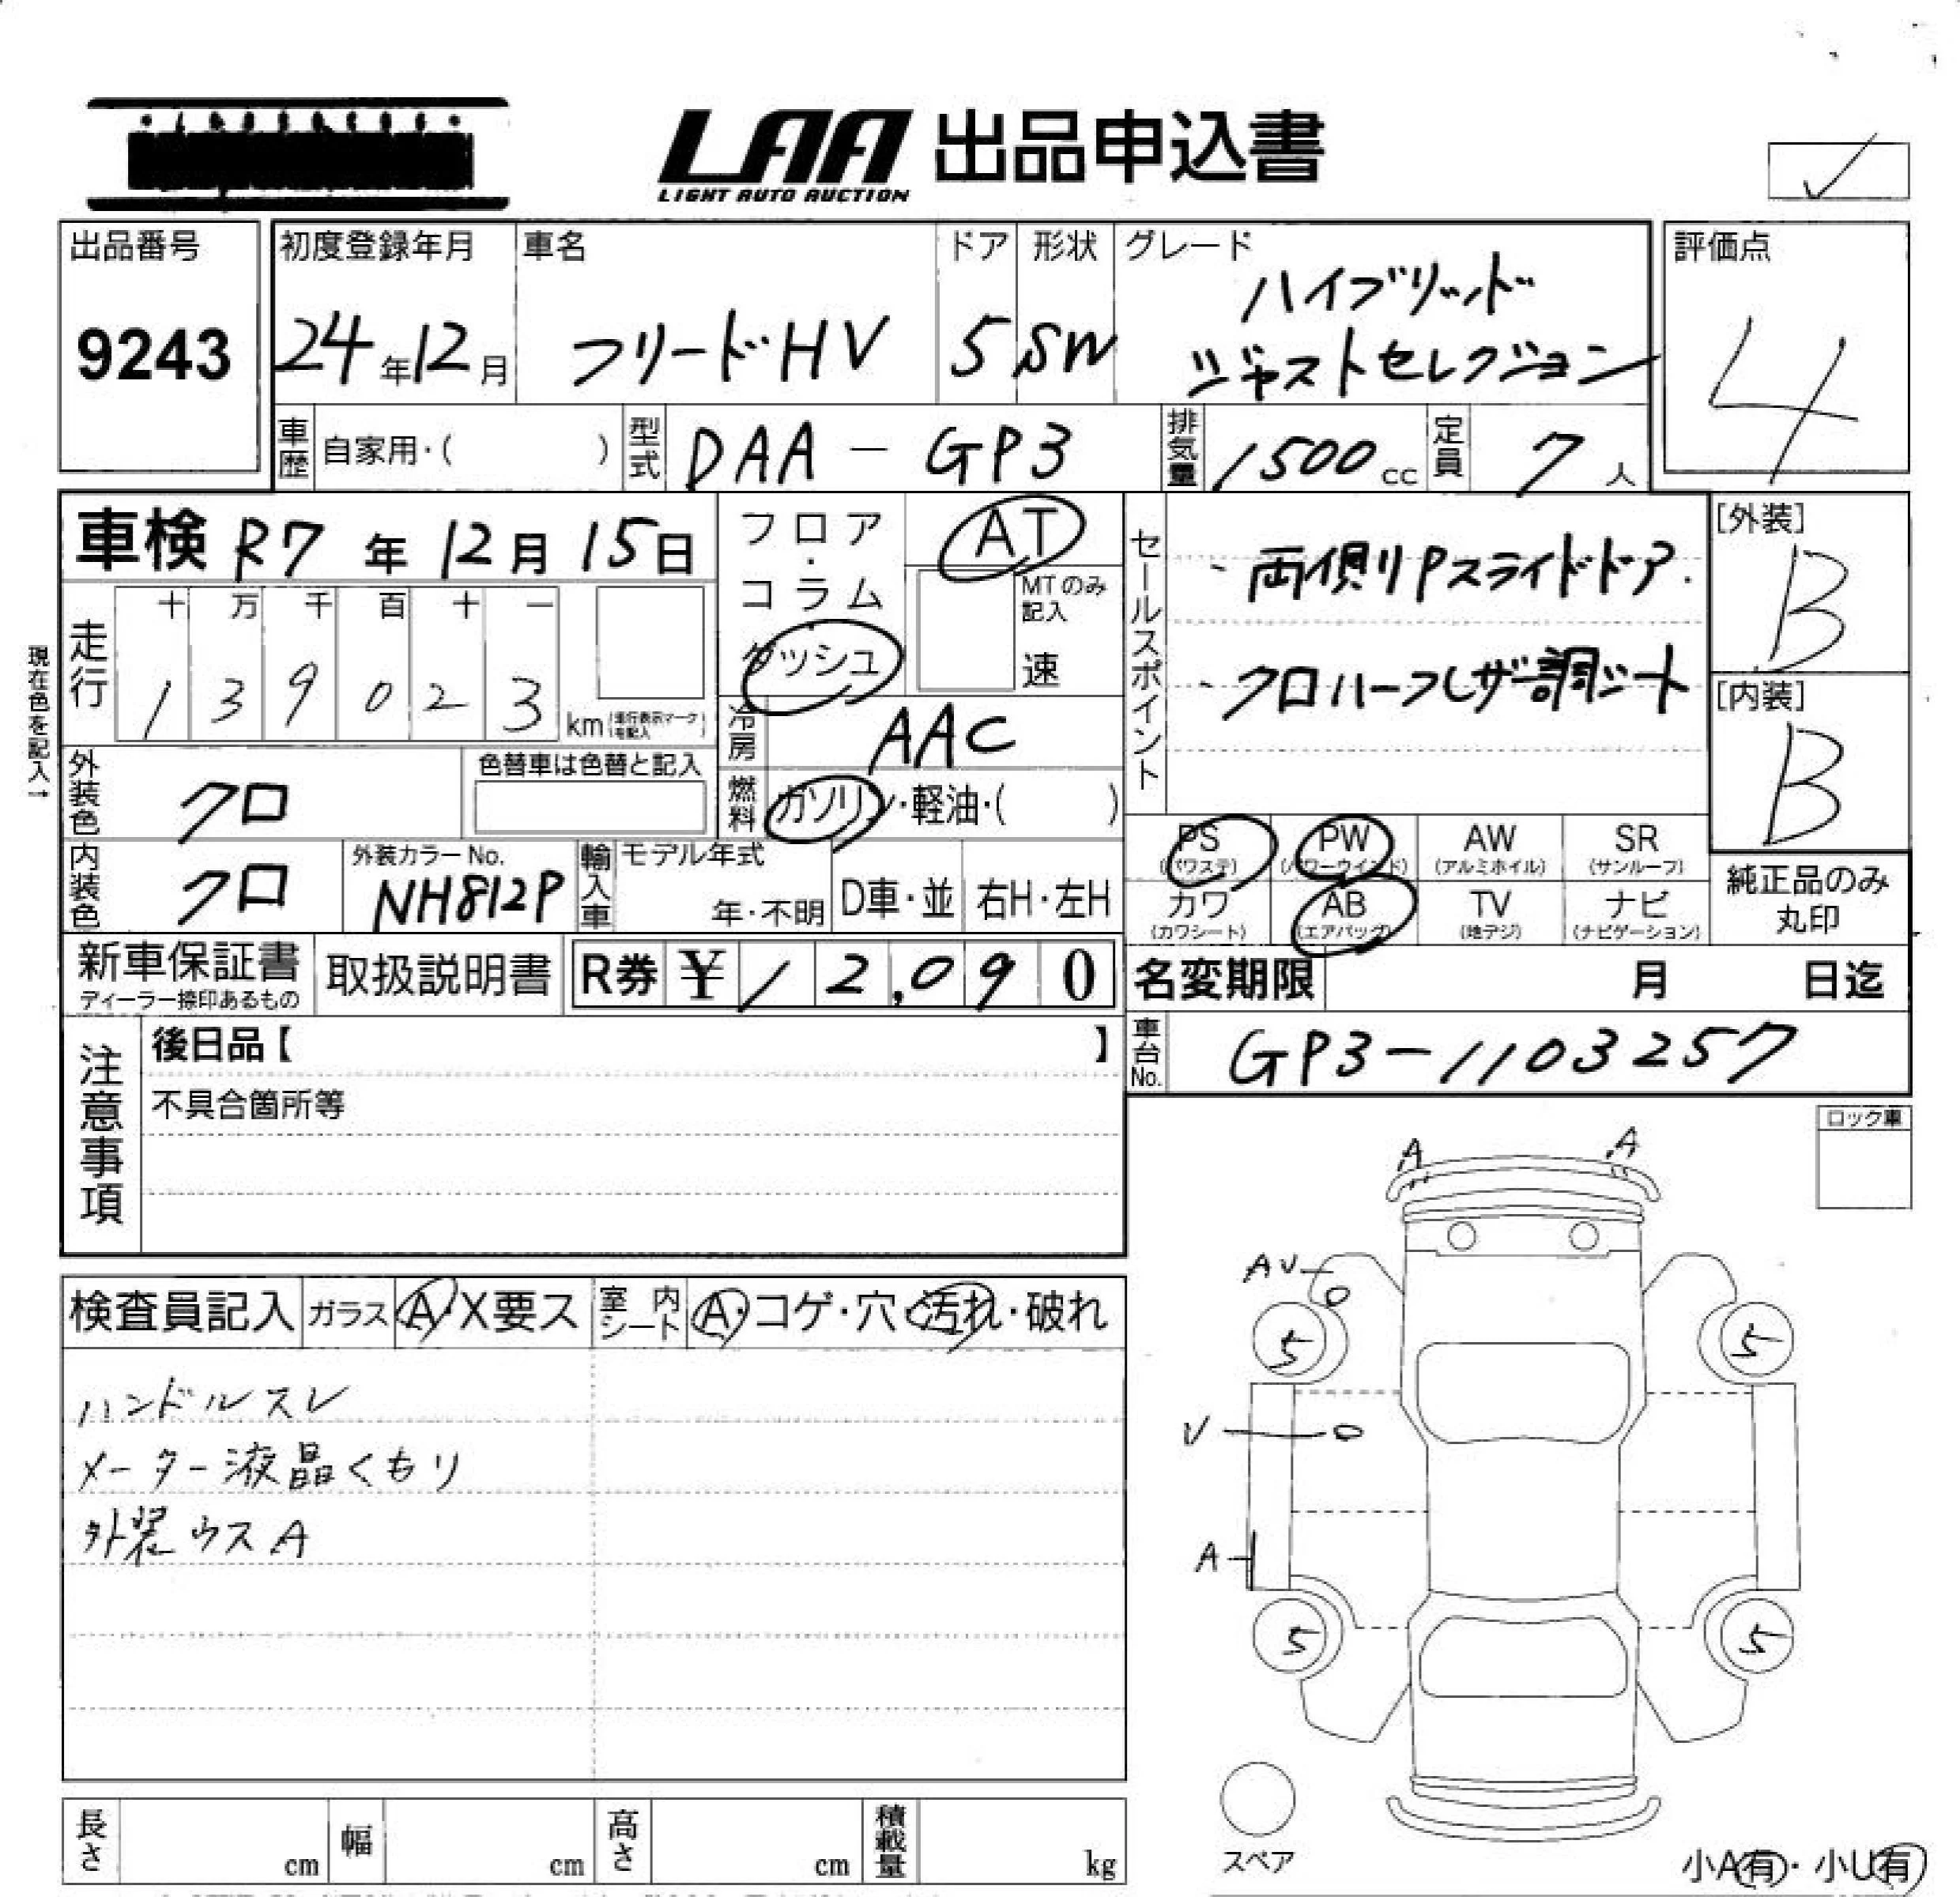 LAA 出品申込書
LIGHT AUTO AUCTION
✓
出品番号
9243
初度登録年月
24年12月
車名
フリードHV
ドア
5
形状
SW
グレード
ハイブリッド
ジャストセレクション
評価点
4
車歴 自家用・( )
型式 DAA-GP3
排気量 1500cc
定員 7人
車検 R7年12月15日
フロア・コラム
ダッシュ
AT
MTのみ記入
速
セールスポイント
・両側Pスライドドア.
・クロハーフレザー調シート
[外装]
B
[内装]
B
現在色を記入→
走行
十 万 千 百 十 一
1 3 9 0 2 3 km (走行表示マークを記入)
冷房 AAC
外装色 クロ
色替車は色替と記入
燃料 ガソリン・軽油・( )
内装色 クロ
外装カラーNo.
NH812P
輸入車
モデル年式
年・不明
D車・並
右H・左H
PS (パワステ)
PW (パワーウインド)
AW (アルミホイル)
SR (サンルーフ)
カワ (カワシート)
AB (エアバッグ)
TV (地デジ)
ナビ (ナビゲーション)
純正品のみ
丸印
新車保証書
ディーラー捺印あるもの
取扱説明書
R券 ¥12,090
名変期限 月 日迄
注意事項
後日品【 】
不具合箇所等
車台No. GP3-1103257
ロック車
検査員記入
ガラス A・X要ス
室内シート A・コゲ・穴・汚れ・破れ
ハンドルスレ
メーター液晶くもり
外装ウスA
A A
AU
5 5
U
A
5 5
スペア
小A(有)・小U(有)
長さ cm
幅 cm
高さ cm
積載量 kg